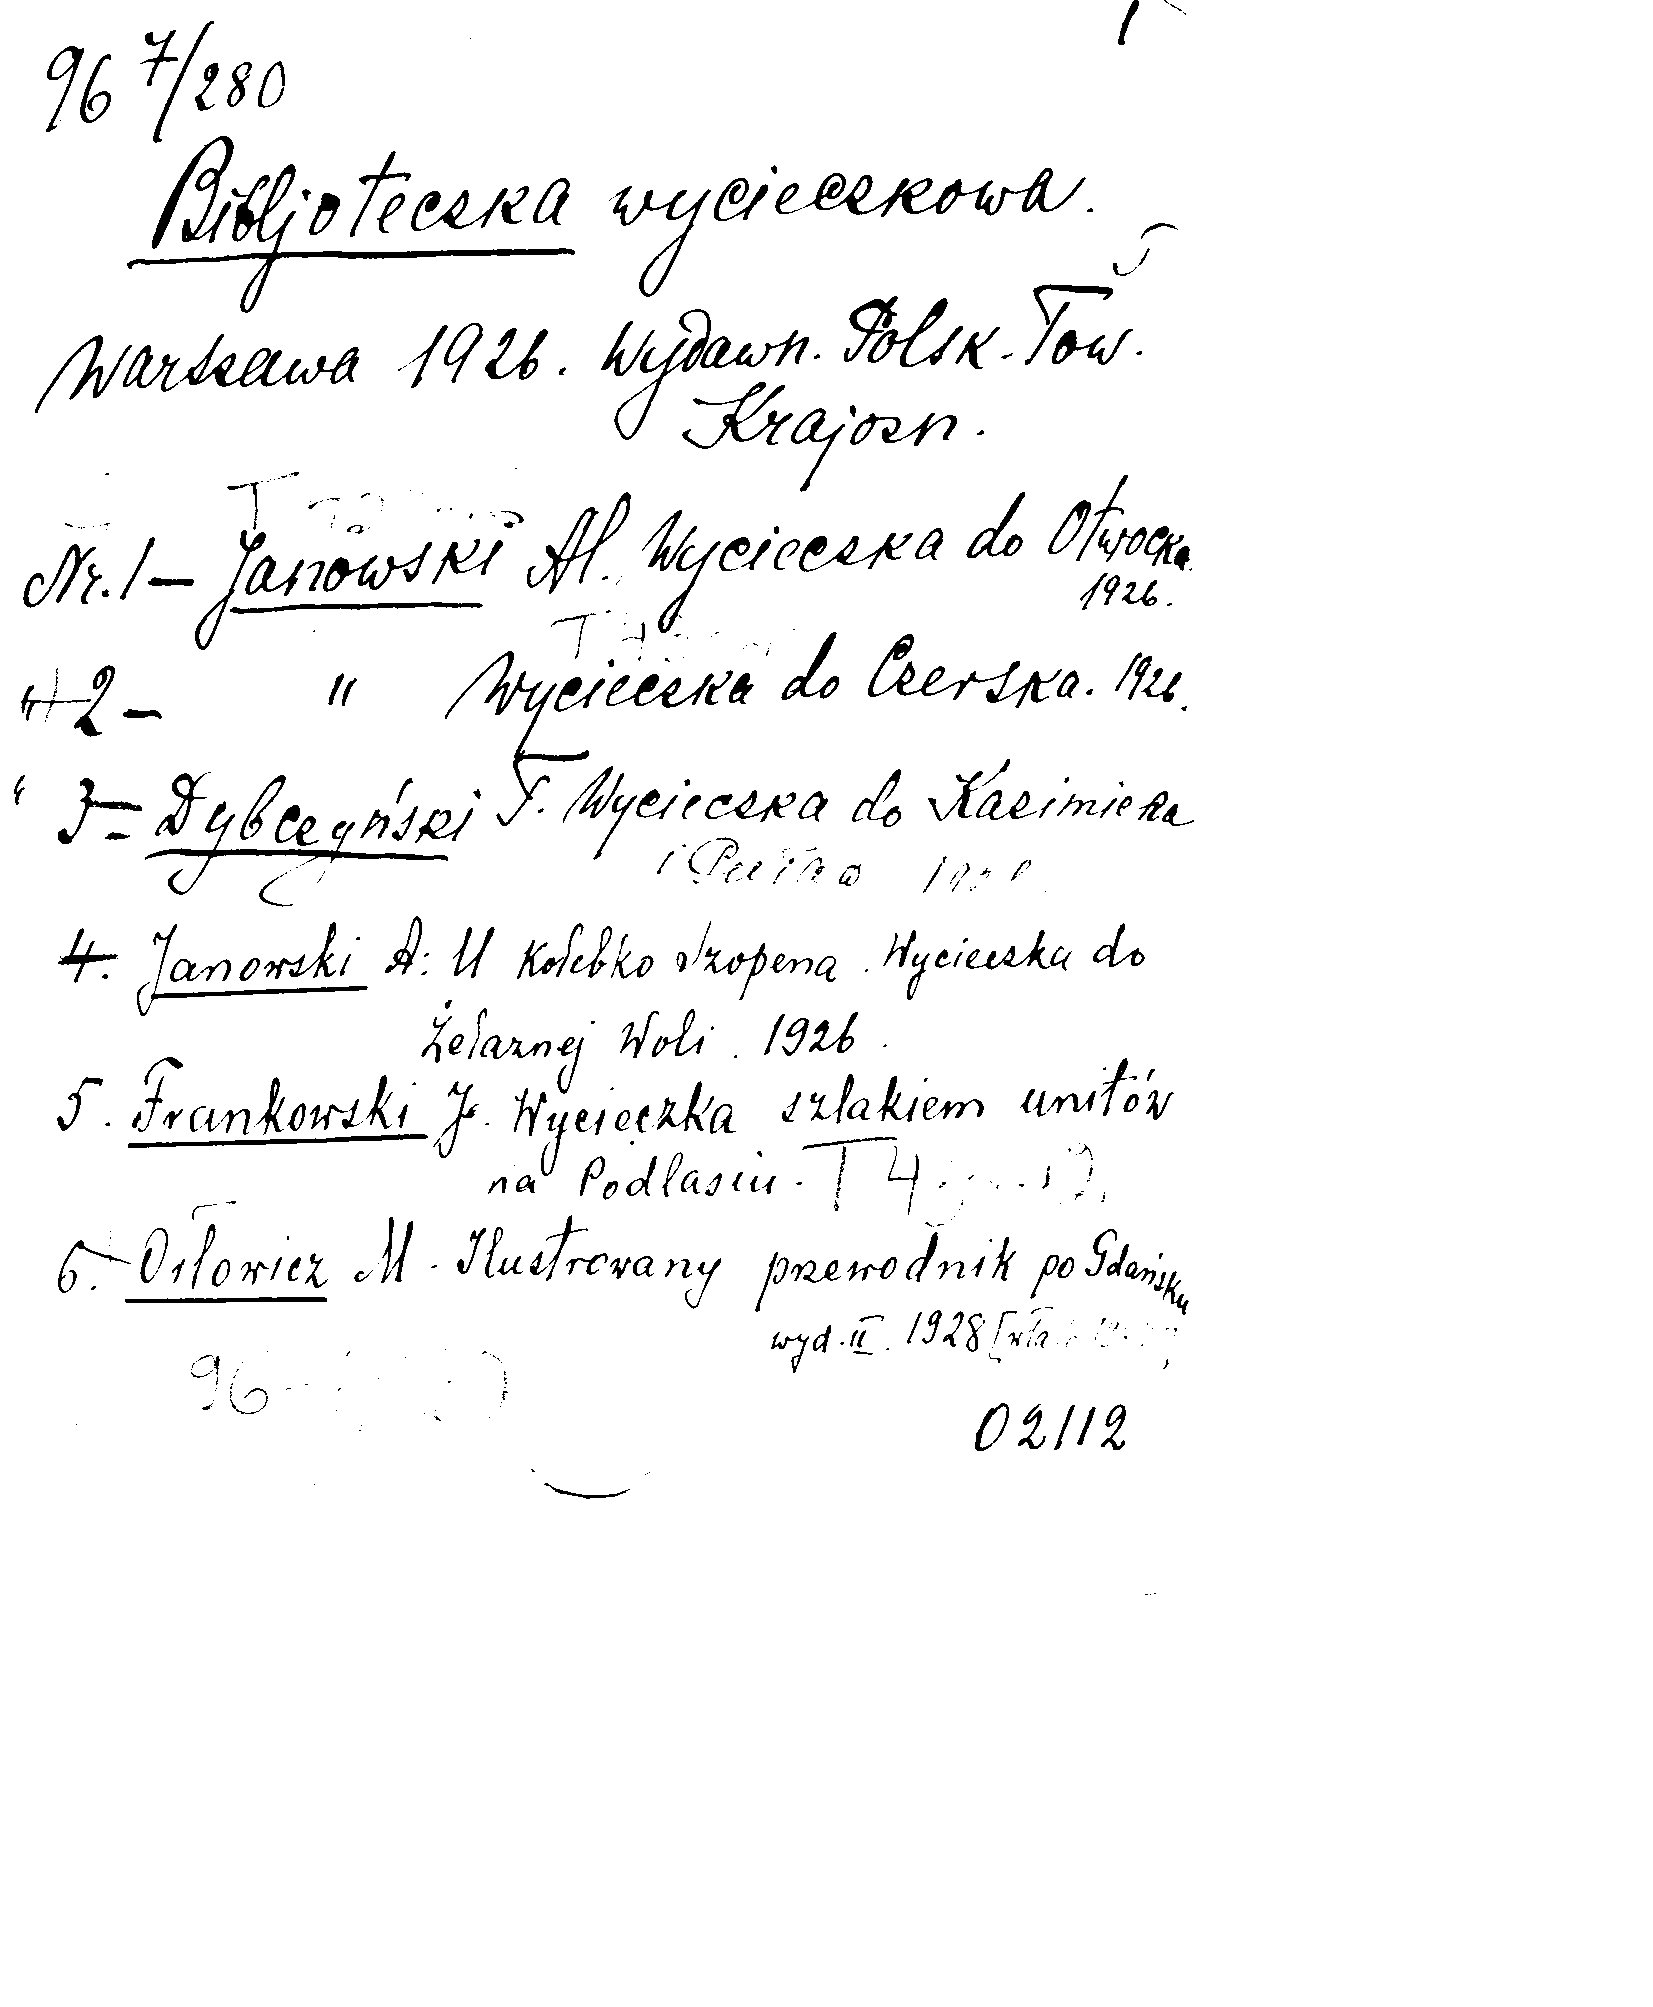 96 7/280
Bibljoteczka wycieczkowa.
Warszawa 1926. Wydawn. Polsk. Tow.
Krajozn.
Nr. 1 – Janowski Al. Wycieczka do Otwocka
1926.
" 2 – " Wycieczka do Czerska. 1926.
" 3 – Dybczyński T. Wycieczka do Kazimierza
i Puław
4. Janowski A: U kolebki Szopena. Wycieczka do
Żelaznej Woli. 1926.
5. Frankowski J. Wycieczka szlakiem unitów
na Podlasiu. T 4
6. Orłowicz M. Ilustrowany przewodnik po Gdańsku
wyd. II. 1928
96
02112